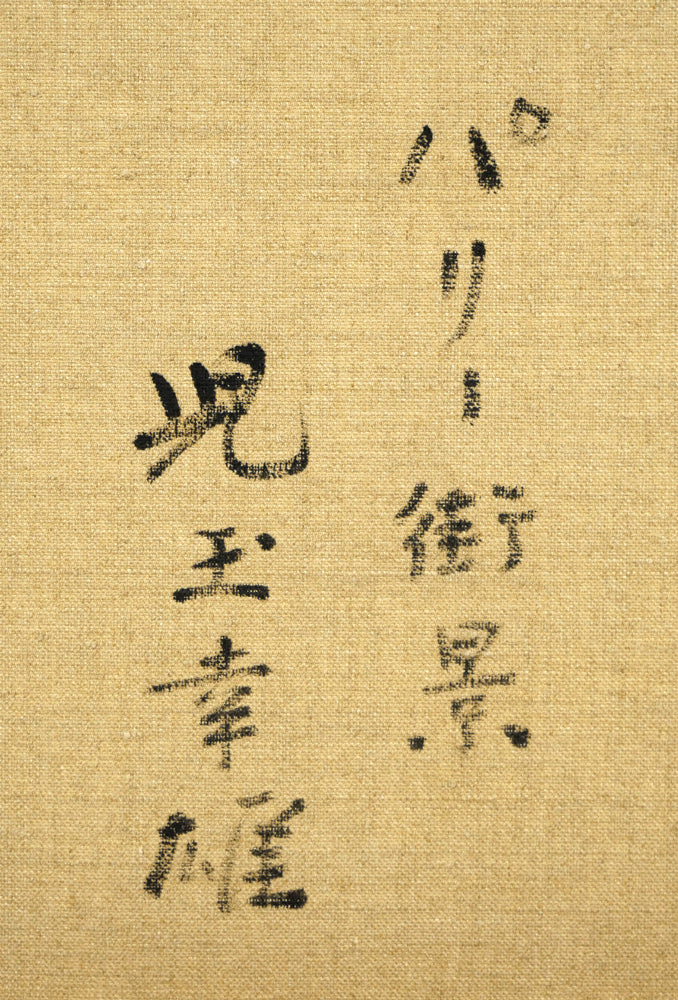 パリー街景
児玉幸雄